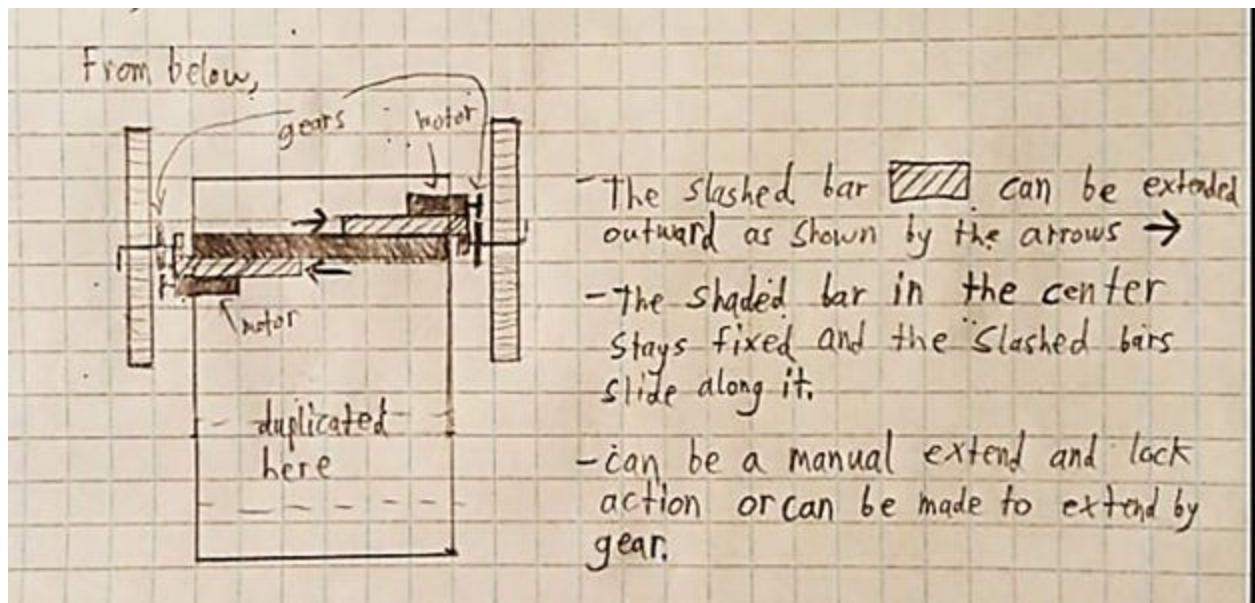 From below,
gears
motor
motor
duplicated
here
- The slashed bar can be extended
outward as shown by the arrows →
- The shaded bar in the center
stays fixed and the slashed bars
slide along it.
- can be a manual extend and lock
action or can be made to extend by
gear.